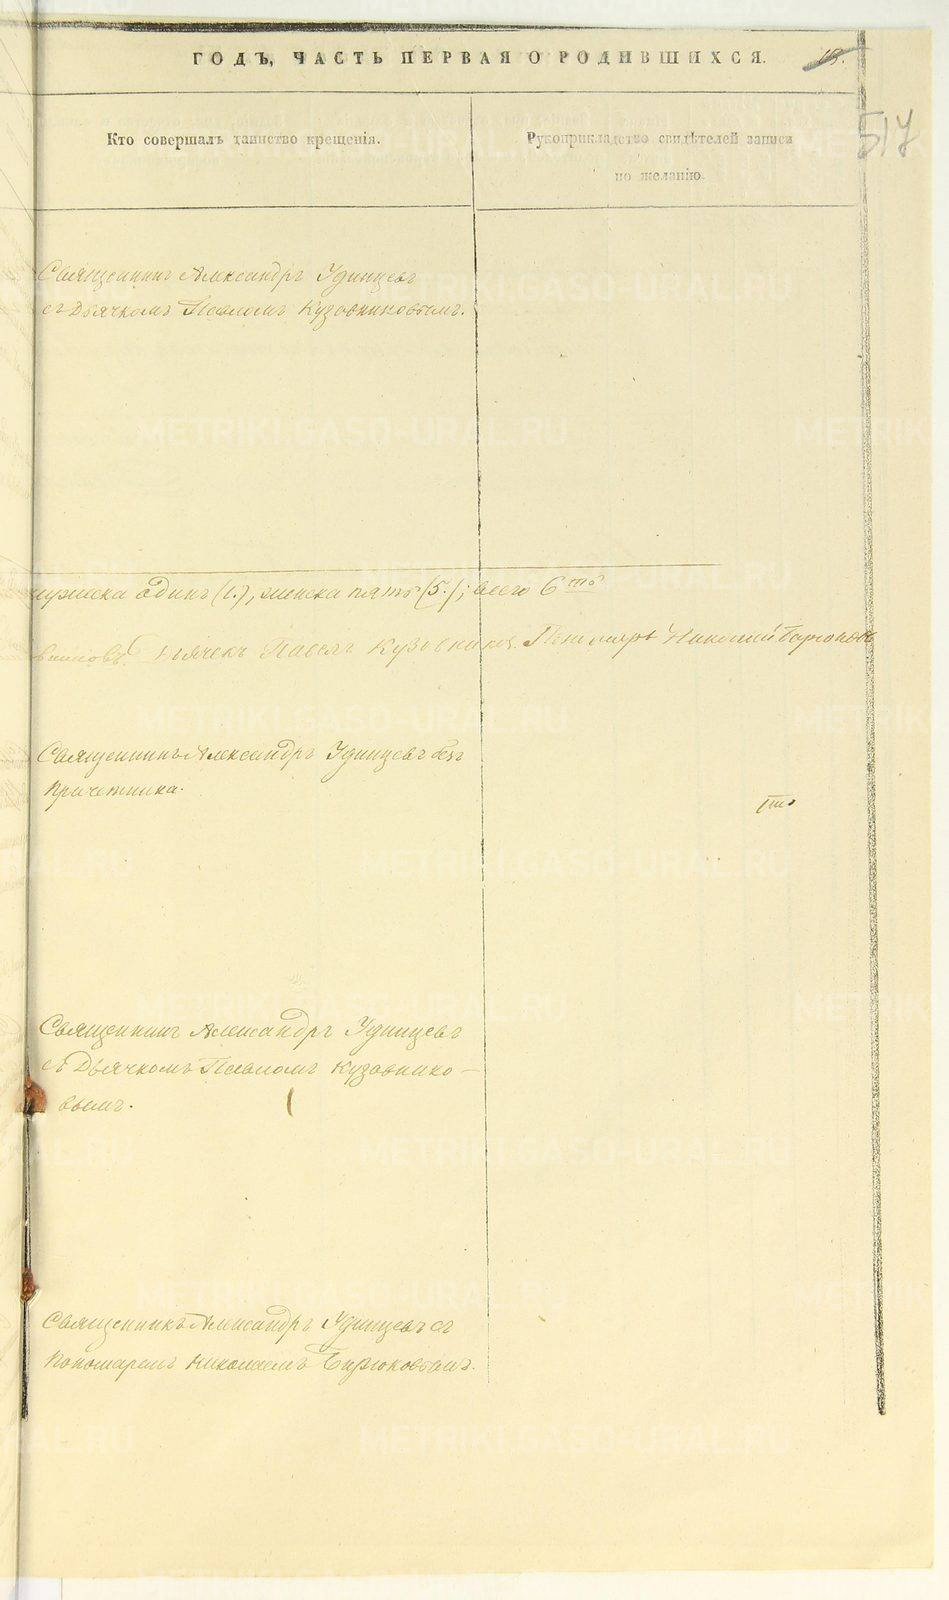 ГОДЪ, ЧАСТЬ ПЕРВАЯ О РОДИВШИХСЯ.
517
Кто совершалъ таинство крещенія.
Рукоприкладство свидѣтелей записи
по желанію.
Священникъ Александръ Удинцевъ
съ Дьячкомъ Павломъ Кузовниковымъ.
мужеска одинъ (1.), женска пять (5.); всего 6ть
Дьячекъ Павелъ Кузовниковъ. Пономарь Николай Бирюковъ
Священникъ Александръ Удинцевъ безъ
причетника.
Священникъ Александръ Удинцевъ
съ Дьячкомъ Павломъ Кузовнико-
вымъ.
Священникъ Александръ Удинцевъ съ
Пономаремъ Николаемъ Бирюковымъ.
METRIKI.GASO-URAL.RU